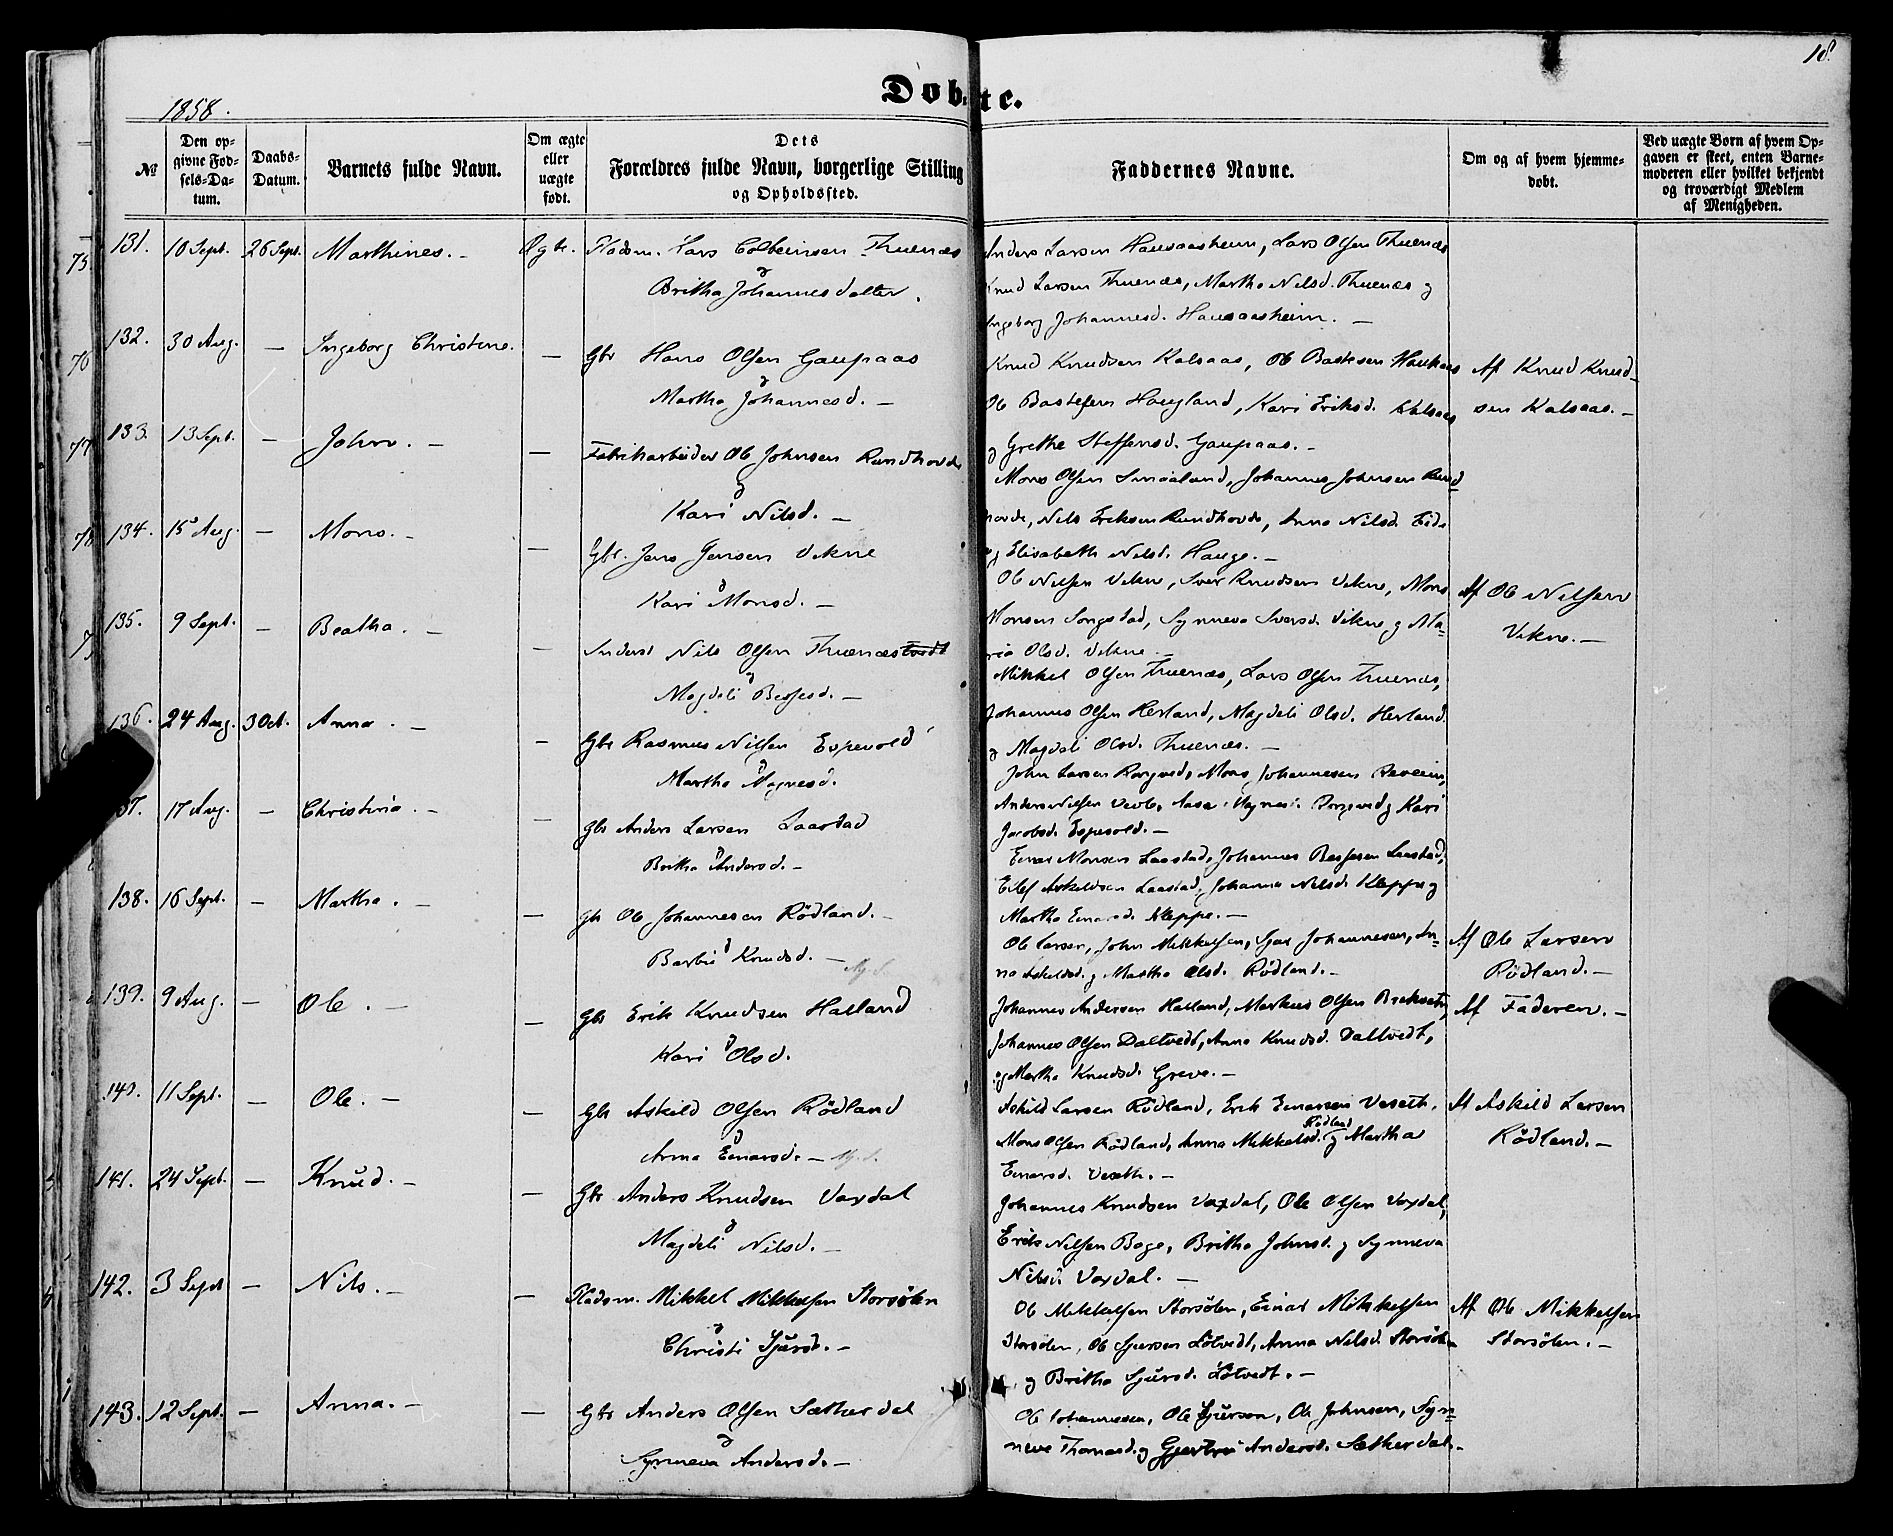 18.
Døbte.
1858.
№
Den opgivne Fødsels-Datum.
Daabs-Datum.
Barnets fulde Navn.
Om ægte eller uægte født.
Dets Forældres fulde Navn, borgerlige Stilling og Opholdssted.
Faddernes Navne.
Om og af hvem hjemmedøbt.
Ved uægte Børn af hvem Opgaven er skeet, enten Barnemoderen eller hvilket bekjendt og troværdigt Medlem af Menigheden.
131. 10 Sept. 26 Sept. Marthines. - Ægte. Pladsm. Lars Colbeinsen Thuenæs
& Britha Johannesdatter.
Anders Larsen Hausaasheim, Lars Olsen Thuenæs
Knud Larsen Thuenæs, Martha Nilsd. Thuenæs &
Ingeborg Johannesd. Hausaasheim. -
132. 30 Aug. - Ingeborg Christine. - Gbr Hans Olsen Gaupaas
& Martha Johannesd. -
Knud Knudsen Kalsaas, Ole Haukaas
Ole Haugland, Kari Eriksd. Kalsaas
& Grethe Steffensd. Gaupaas. -
Af Knud Knud-
sen Kalsaas. -
133. 13 Sept. - John. - - Fabrikarbeider Ole Johnsen Rundhovde
& Kari Nilsd. -
Mons Olsen Smaaland, Johannes Johnsen Rund
hovde, Nils Eriksen Rundhovde, Anna Nilsd. Eide
& Elisabeth Nilsd. Hauge. -
134. 15 Aug. - Mons. - - Gbr. Jens Jensen Vikne
& Kari Monsd. -
Ole Nilsen Vikne, Sver Knudsen Vikne, Mons
Monsen Songstad, Synneva Sversd. Vikne & Ma-
ria Olsd. Vikne. -
Af Ole Nilsen
Vikne. -
135. 9 Sept. - Beatha. - - Inderst Nils Olsen Thuenæs
& Magdeli Bessesd. -
Mikkel Olsen Thuenæs, Lars Olsen Thuenæs,
Johannes Olsen Herland, Magdeli Olsd. Herland
& Magdeli Olsd. Thuenæs. -
136. 24 Aug. 3 Oct. Anna. - - Gbr Rasmus Nilsen Espevold
& Martha Magnesd.
John Larsen Mons Johannesen
Anders Nilsen & Kari
Jacobsd. Espevold. -
137. 17 Aug. - Christina. - - Gbr Anders Larsen Laastad
& Britha Andersd. -
Einar Monsen Laastad, Johannes Bessesen Laastad,
Eilef Askildsen Laastad, Johanna Nilsd. Kleppe &
Martha Einarsd. Kleppe. -
138. 16 Sept. - Martha. - - Gbr Ole Johannesen Rödland. -
& Barbru Knudsd. -
Ole Larsen, John Mikkelsen, Johannesen, An-
na Askildsd. & Martha Olsd. Rödland. -
Af Ole Larsen
Rödland. -
139. 9 Aug. - Ole. - - Gbr Erik Knudsen Halland
& Kari Olsd.
Johannes Andersen Halland, Markus Olsen
Johannes Olsen Daltvedt, Anna Knudsd. Daltvedt,
& Martha Knudsd. Greve. -
Af Faderen. -
140. 11 Sept. - Ole. - - Gbr Askild Olsen Rödland
& Anna Einarsd. -
Askild Larsen Rödland, Erik Einarsen Veseth.
Mons Olsen Rödland, Anna Mikkelsd. Rödland & Martha
Einarsd. Veseth. -
Af Askild Larsen
Rödland. -
141. 24 Sept. - Knud. - - Gbr Anders Knudsen Vaxdal
& Magdeli Nilsd. -
Johannes Knudsen Vaxdal, Ole Olsen Vaxdal,
Erik Nilsen Boge, Britha Johnsd. & Synneva
Nilsd. Vaxdal. -
142. 3 Sept - Nils. - - Pladsm. Mikkel Mikkelsen Storsölen
& Christi Sjursd. -
Ole Mikkelsen Storsölen, Einar Mikkelsen
Storsölen, Ole Sjursen Lötvedt, Anna Nilsd. Storsölen
& Britha Sjursd. Lötvedt. -
Af Ole Mikkelsen
Storsölen. -
143. 12 Sept. - Anna. - - Gbr Anders Olsen Sætherdal
& Synneva Andersd. -
Ole Johannesen, Ole Sjursen, Ole Johnsen, Syn-
neve Thomasd. & Gjertru Andersd. Sætherdal. -